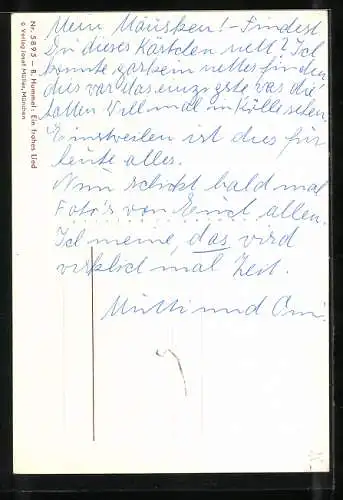 Nr. 5895 — B. Hummel: Ein frohes Lied
© Verlag Josef Müller, München
Mein Mäusken! - Findest
Du dieses Kärtchen nett? Ich
konnte gar kein nettes finden
dies war das einzigste was die
hatten Will mal in Kölle sehen.
Einstweilen ist dies für
heute alles.
Nun schickt bald mal
Foto's von Euch allen.
Ich meine, das wird
wirklich mal Zeit.
Mutti und Omi